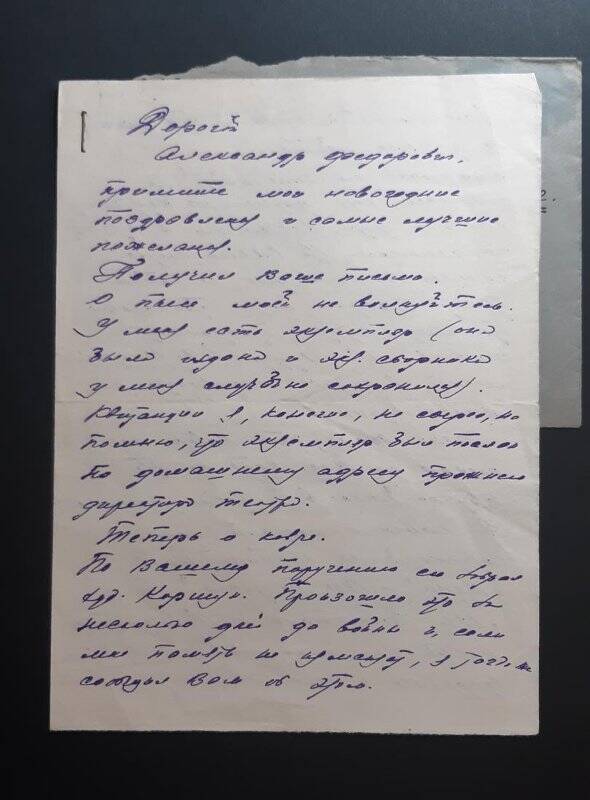 Дорогой
Александр Федорович,
примите мои новогодние
поздравления и самые лучшие
пожелания.
Получил Ваше письмо.
О пьесе моей не волнуйтесь.
У меня есть экземпляр (она
была издана и экз. сборника
у меня случайно сохранился).
Квитанции я, конечно, не сберег, но
помню, что экземпляр был послан
по домашнему адресу прежнего
директора театра.
Теперь о ковре.
По Вашему поручению его
худ. Коршун. Произошло это за
несколько дней до войны и, если
мне память не изменяет, я тогда же
сообщил Вам об этом.
2.